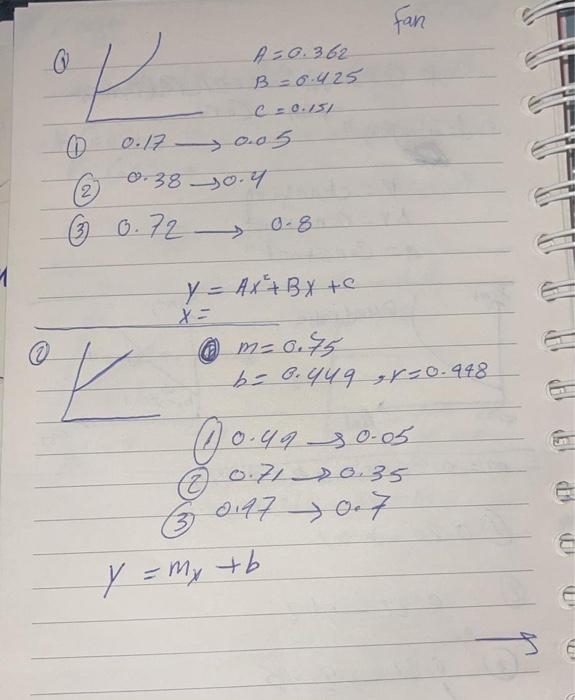 fan
① A = 0.362
B = 0.425
C = 0.151
① 0.17 → 0.05
② 0.38 → 0.4
③ 0.72 → 0.8
y = Ax² + Bx + C
x =
② m = 0.75
b = 0.449 , r = 0.998
① 0.49 → 0.05
② 0.71 → 0.35
③ 0.97 → 0.7
y = mx + b
→